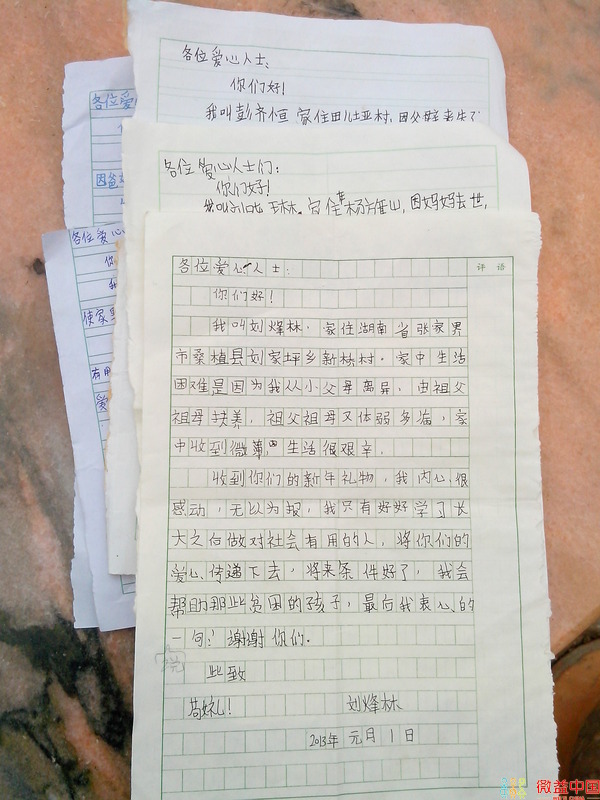 各位爱心人士:
你们好!
我叫彭齐恒 家住田
各位爱心人士们:
你们好!
因妈妈去世,
各位爱
因爸
各位爱心
使家
有用
爱
评语
各位爱心人士:
你们好!
我叫刘烽林,家住湖南省张家界
市桑植县刘家坪乡新桥村。家中生活
困难是因为我从小父母离异,由祖父
祖母扶养,祖父祖母又体弱多病,家
中收到微薄,生活很艰辛。
收到你们的新年礼物,我内心很
感动,无以为报,我只有好好学习长
大之后做对社会有用的人,将你们的
爱心传递下去,将来条件好了,我会
帮助那些贫困的孩子,最后我衷心的
一句:谢谢你们。
此致
敬礼!
刘烽林
2013年元月1日
微益中国